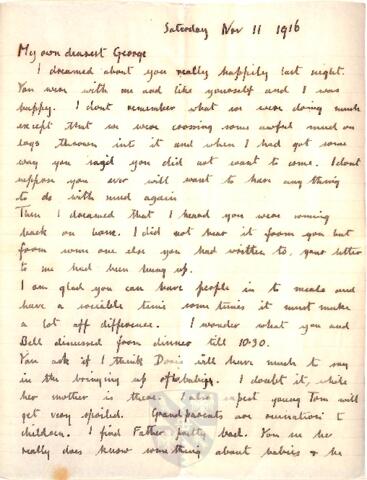 Saturday Nov 11 1916
My own dearest George
I dreamed about you really happily last night.
You were with me and like yourself and I was
happy. I dont remember what we were doing much
except that we were crossing some awful mud on
logs thrown into it and when I had got some
way you said you did not want to come. I dont
suppose you ever will want to have any thing
to do with mud again
Then I dreamed that I heard you were coming
back on leave. I did not hear it from you but
from some one else you had written to, your letter
to me had been hung up.
I am glad you can have people in to meals and
have a sociable time some times it must make
a lot off difference. I wonder what you and
Bell discussed from dinner till 10.30.
You ask if I think Doris will have much to say
in the bringing up of babies. I doubt it, while
her mother is there. I also expect young Tom will
get very spoiled. Grandparents are ruination to
children. I find Father pretty bad. You see he
really does know something about babies & he